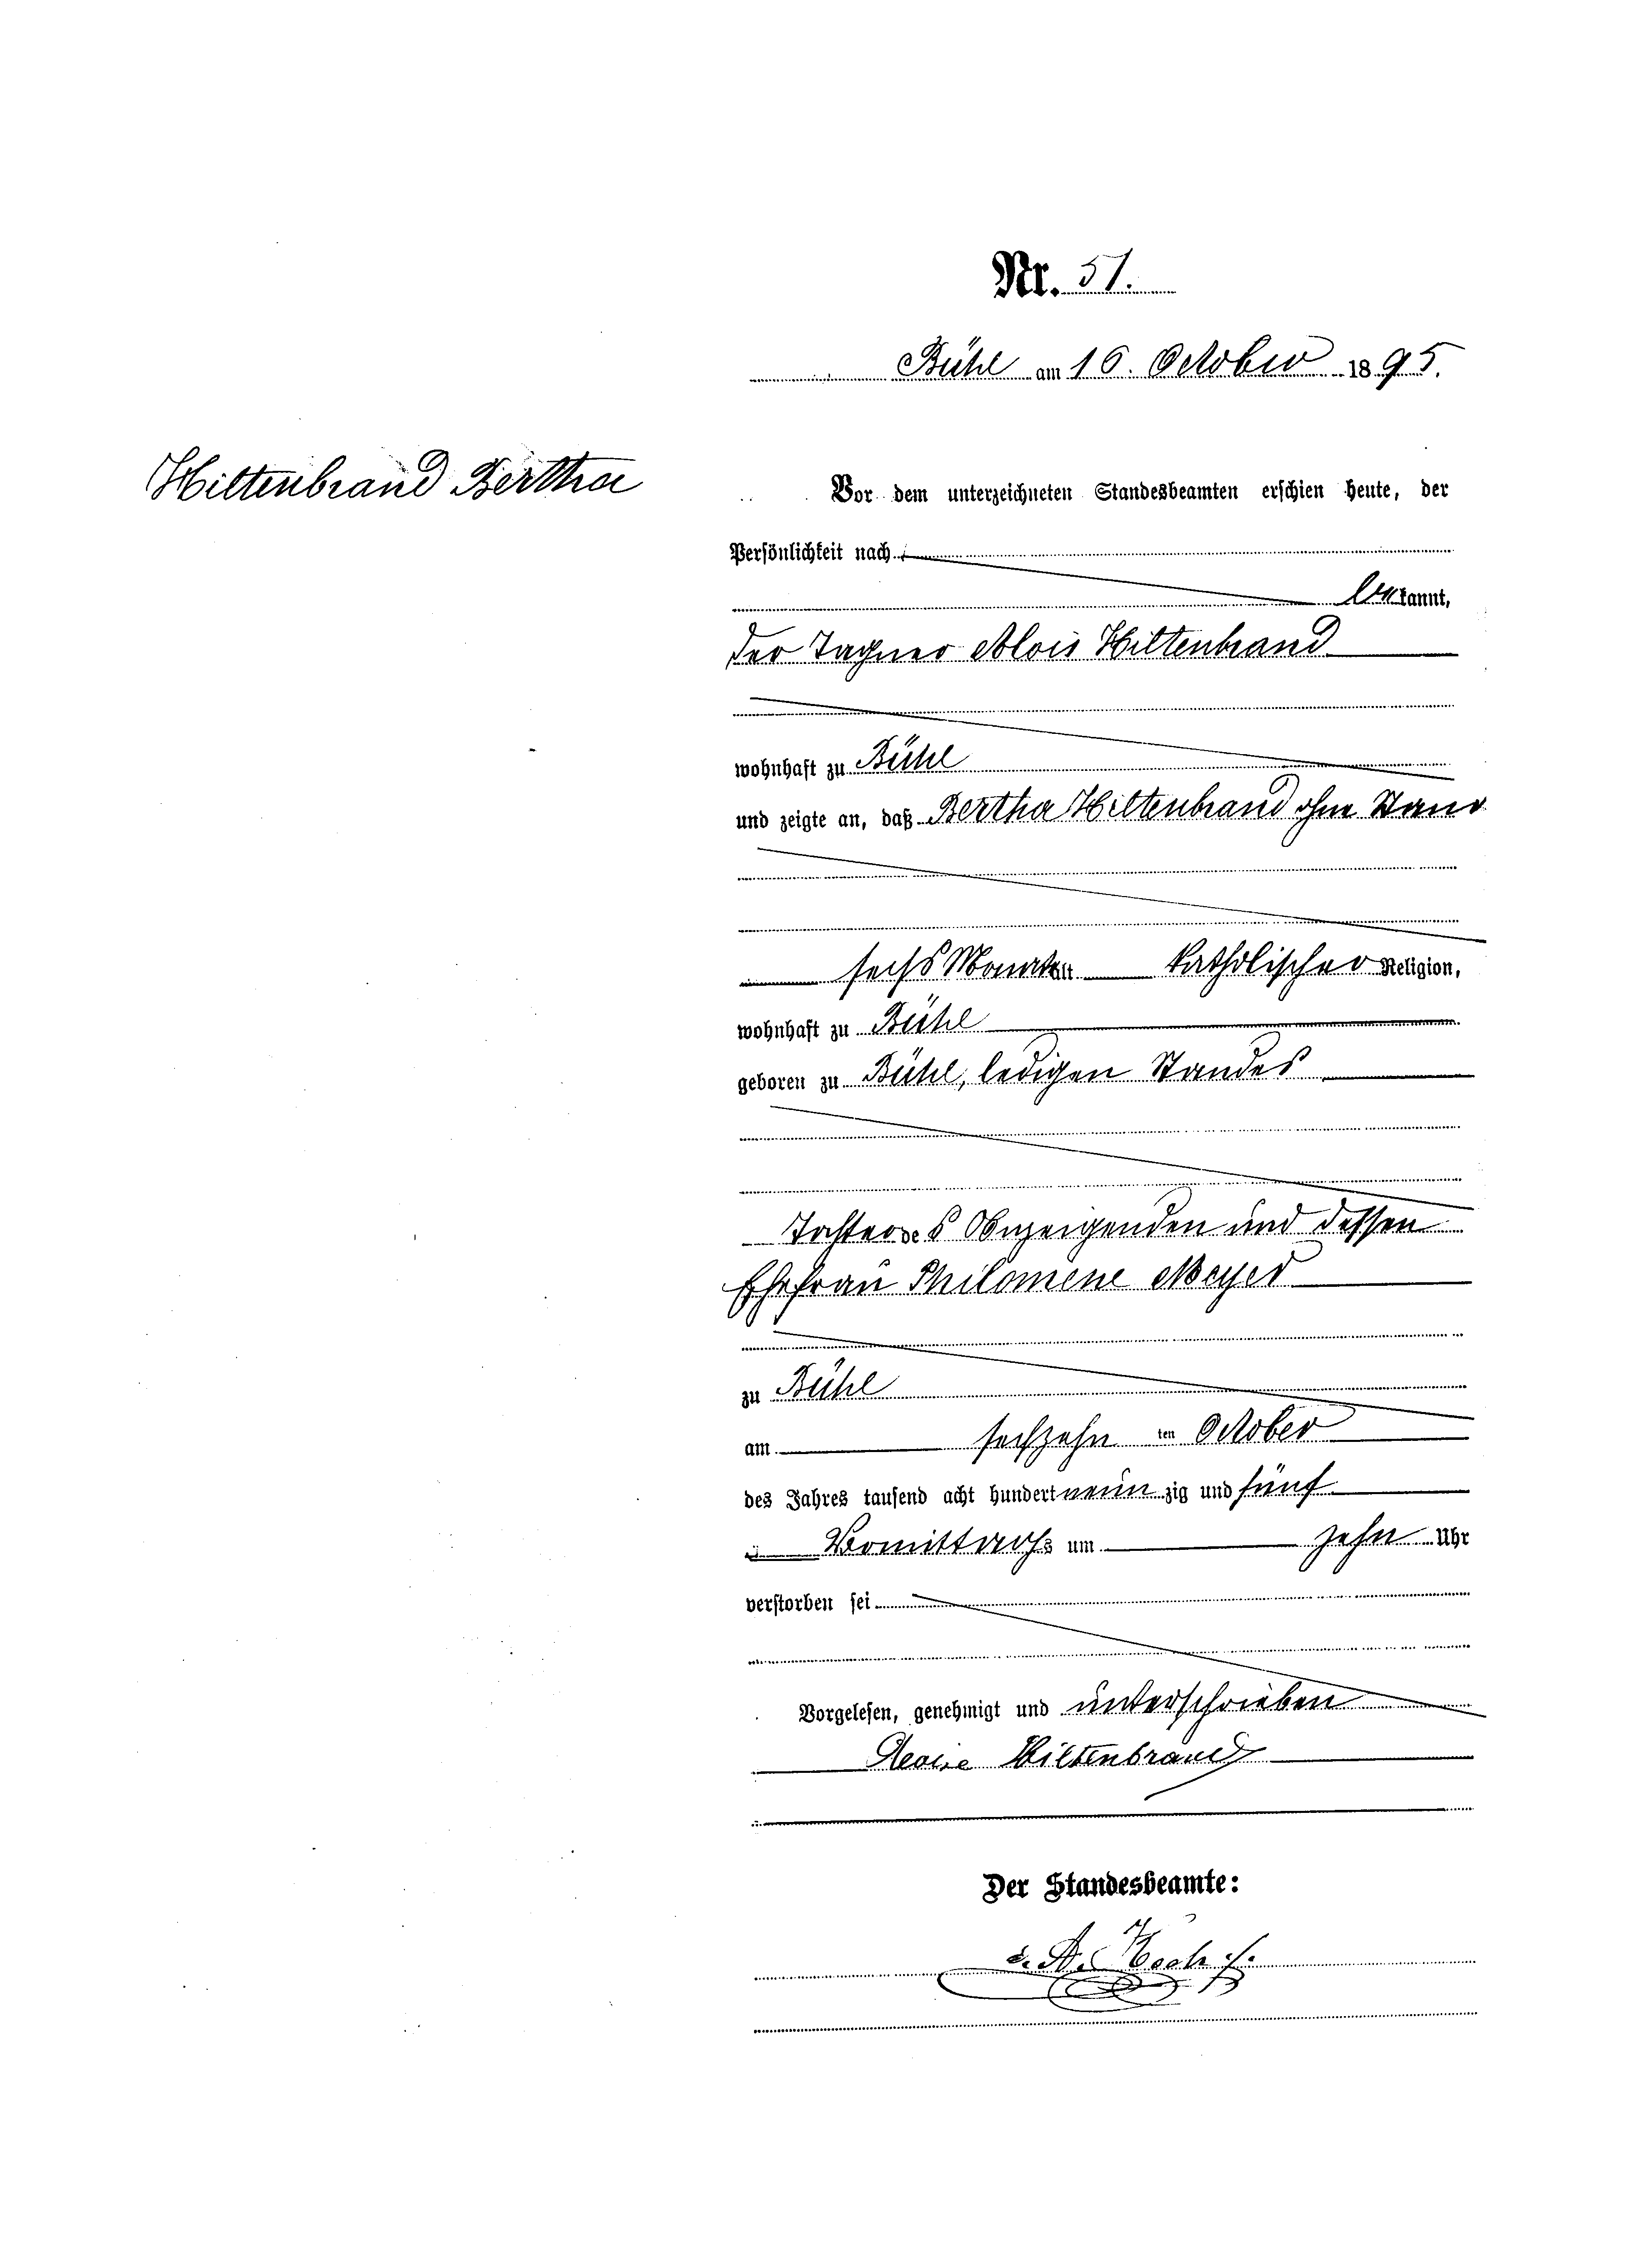 Nr. 51.
Bühl am 16. October 1895.
Hiltenbrand Bertha
Vor dem unterzeichneten Standesbeamten erschien heute, der
Persönlichkeit nach
bekannt,
der Tagner Alois Hiltenbrand
wohnhaft zu Bühl
und zeigte an, daß Bertha Hiltenbrand ohne Stand
sechs Monaten katholischer Religion,
wohnhaft zu Bühl
geboren zu Bühl, ledigen Standes
Tochter des Anzeigenden und dessen
Ehefrau Philomene Meyer
zu Bühl
am sechzehn ten October
des Jahres tausend acht hundert neun zig und fünf
Vormittags um zehn Uhr
verstorben sei
Vorgelesen, genehmigt und unterschrieben
Aloise Hiltenbrand
Der Standesbeamte: